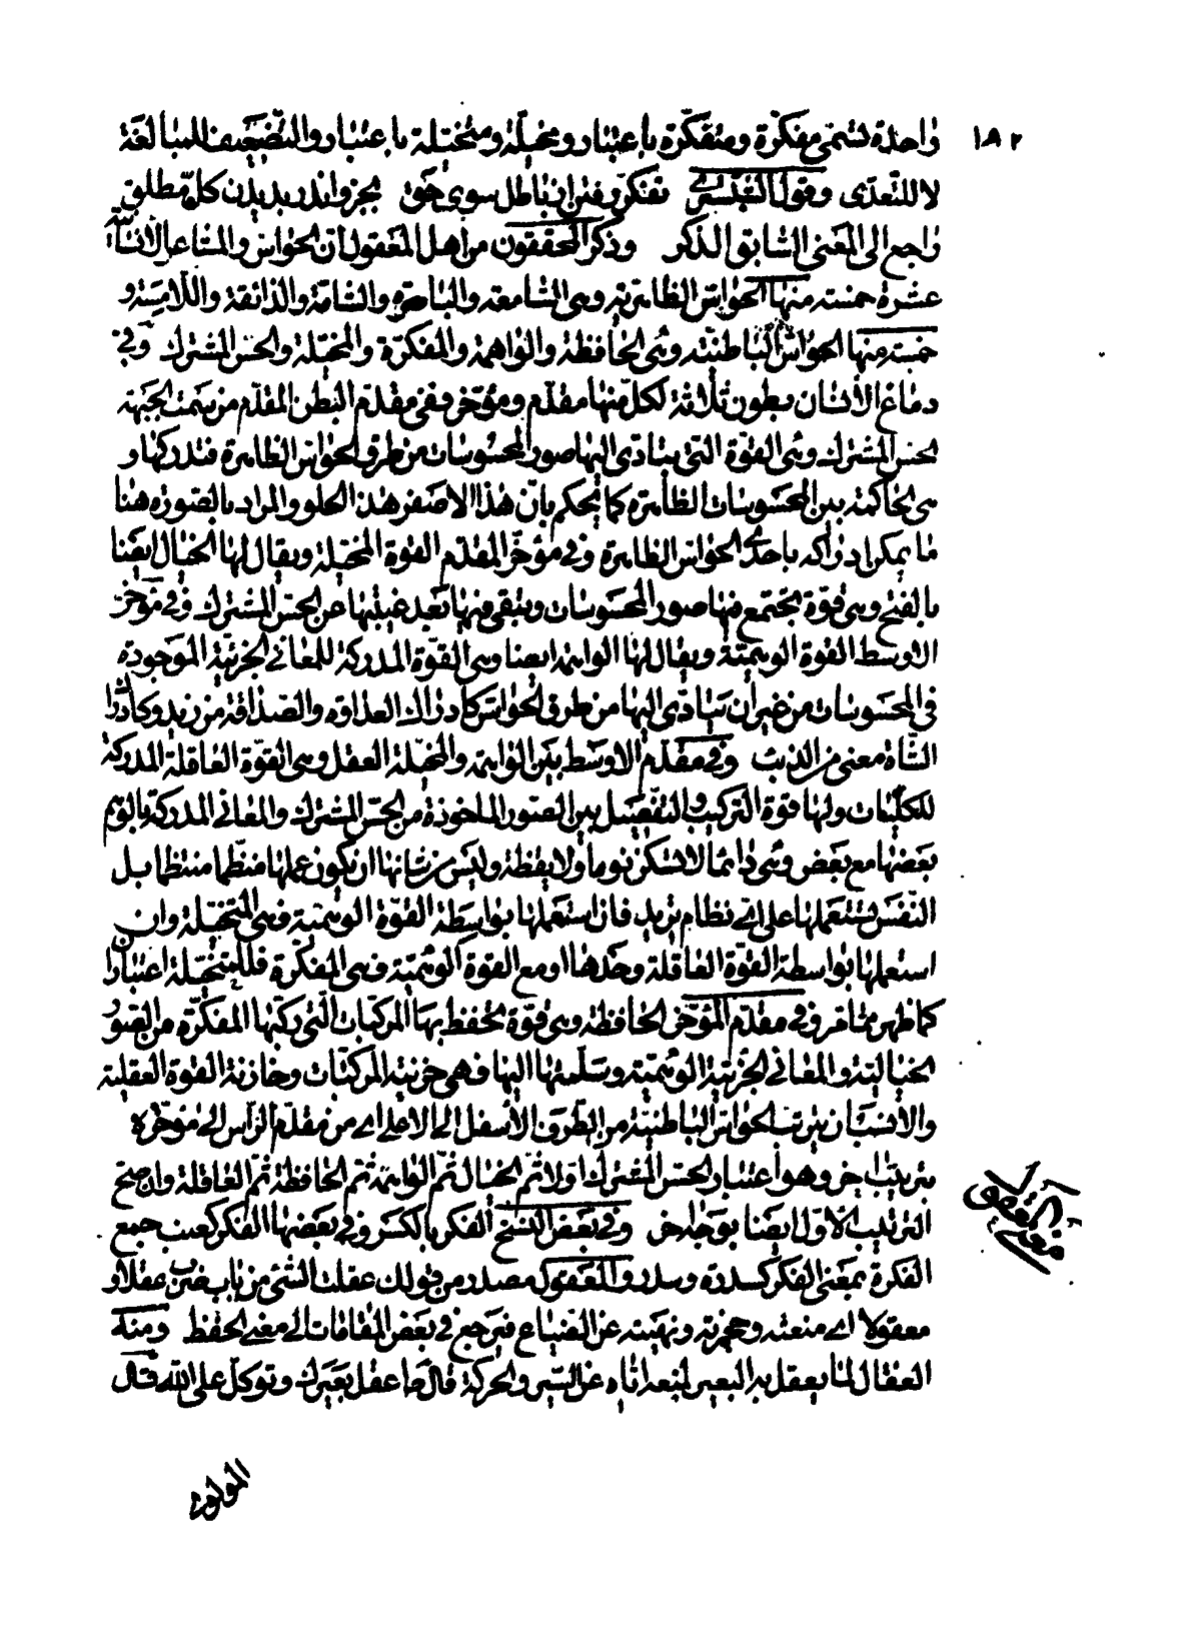 واحدة تسمى مفكرة ومتفكرة باعتبار ومخيلة ومتخيلة باعتبار والتضعيف للمبالغة
١٨٢
لا للتعدى وقول الشبسترى تفكر رفتن از باطل سوى حق بجزو اندر بديدن كل مطلق
راجع الى المعنى السابق الذكر وذكر المحققون من اهل المعقول ان الحواس والمشاعر الانسانية
عشرة خمسة منها الحواس الظاهرية وهى السامعة والباصرة والشامة والذائقة واللامسة و
خمسة منها الحواس الباطنية وهى الحافظة والواهمة والمفكرة والمخيلة والحس المشترك وفى
دماغ الانسان بطون ثلاثة لكل منها مقدم ومؤخر ففى مقدم البطن المقدم من سمت الجبهة
الحس المشترك وهى القوة التى يتادى اليها صور المحسوسات من طرق الحواس الظاهرة فتدركها و
هى الحاكمة بين المحسوسات الظاهرة كما يحكم بان هذا الاصفر هذا الحلو والمراد بالصورة هنا
ما يمكن ادراكه باحدى الحواس الظاهرة وفى مؤخر المقدم القوة المخيلة ويقال لها الخيال ايضا
بالفتح وهى قوة يجتمع فيها صور المحسوسات ويبقى فيها بعد غيبتها عن الحس المشترك وفى مؤخر
الاوسط القوة الوهمية ويقال لها الواهمة ايضا وهى القوة المدركة للمعانى الجزئية الموجودة
فى المحسوسات من غير ان يتادى اليها من طرق الحواس كادراك العداوة والصداقة من زيد وكادراك
الشاة معنى من الذئب وفى مقدم الاوسط بين الواهمة والمخيلة العقل وهى القوة العاقلة المدركة
للكليات ولها قوة التركيب والتفصيل بين الصور الماخوذة من الحس المشترك والمعانى المدركة بالوهم
بعضها مع بعض وهى دائما لا تسكن نوما ولا يقظة وليس من شانها ان يكون عملها منظما منتظما بل
النفس تستعملها على اى نظام تريد فان استعملها بواسطة القوة الوهمية فهى المتخيلة وان
استعملها بواسطة القوة العاقلة وحدها او مع القوة الوهمية فهى المفكرة فللمتخيلة اعتبارا
كما ظهر مما مر وفى مقدم المؤخر الحافظة وهى قوة تحفظ بها المركبات التى ركبها المفكرة من الصور
الخيالية والمعانى الجزئية الوهمية وسلمتها اليها فهى خزنية المركبات وخازنة القوة العقلية
والانسان يترتب الحواس الباطنية من الطرف الاسفل الى الاعلى اى من مقدم الراس الى مؤخره
بترتيب اخر وهو اعتبار الحس المشترك اولا ثم الخيال ثم الواهمة ثم الحافظة ثم العاقلة وان صح
الترتيب الاول ايضا بوجه اخر وفى بعض النسخ الفكر بالكسر وفى بعضها الفكر كعنب جمع
الفكرة بمعنى الفكر كسدرة وسدر والمعقول مصدر من قولك عقلت الشئ من باب ضرب عقلا و
معنى المعقول
معقولا اى منعته وحجرته ونهيته عن الضياع فيرجع فى بعض المقامات الى معنى الحفظ ومنه
العقال لما يعقل به البعير لمنعه اياه عن السير والحركة قال ع اعقل بعيرك وتوكل على الله قال
المولوى